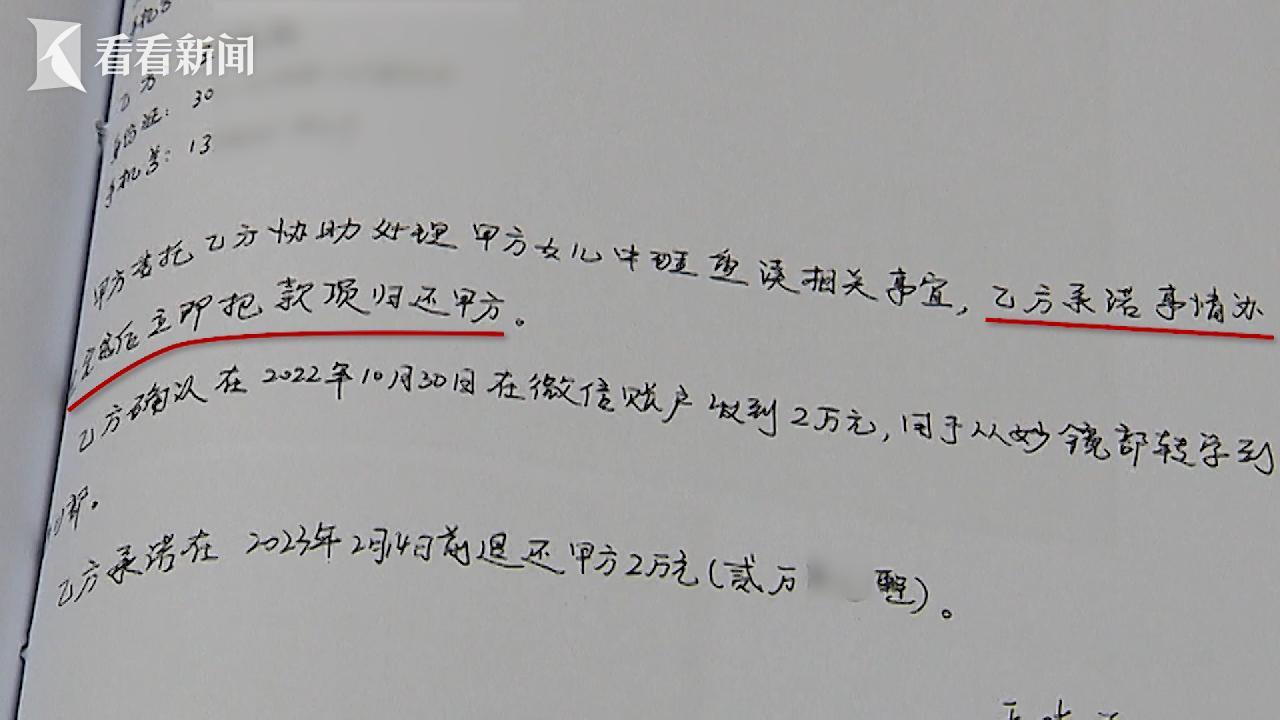 看看新闻
机号
乙方
身份证：30
手机号：13
甲方委托乙方协助处理甲方女儿中班 相关事宜，乙方承诺事情办
立即把款项归还甲方。
乙方确认在2022年10月30日在微信账户收到2万元，用于从妙镜部转学到
部。
乙方承诺在2023年2月14日前退还甲方2万元（贰万 整）。